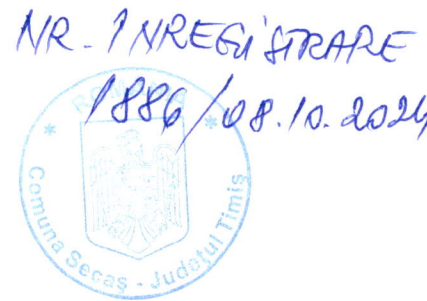 NR. INREGISTRARE
1886/08.10.2024
ROMÂNIA
* Comuna Secaş - Judeţul Timiş *